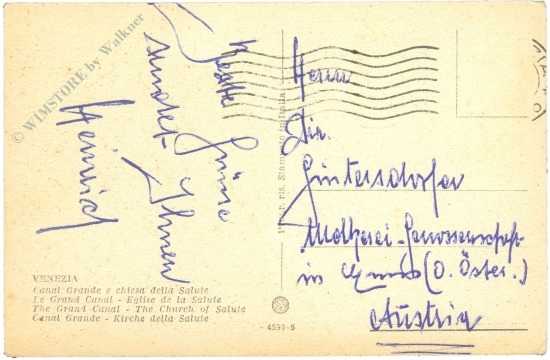 © WIMSTORE by Walkner
Beste Grüsse
sendet Ihnen
Heinrich
Herrn
Dir.
Güntersdorfer
Molkerei-Genossenschaft
in Gmunden (O. Öster.)
Austria
VENEZIA
Canal Grande e chiesa della Salute
Le Grand Canal - Eglise de la Salute
The Grand Canal - The Church of Salute
Canal Grande - Kirche della Salute
4590-5